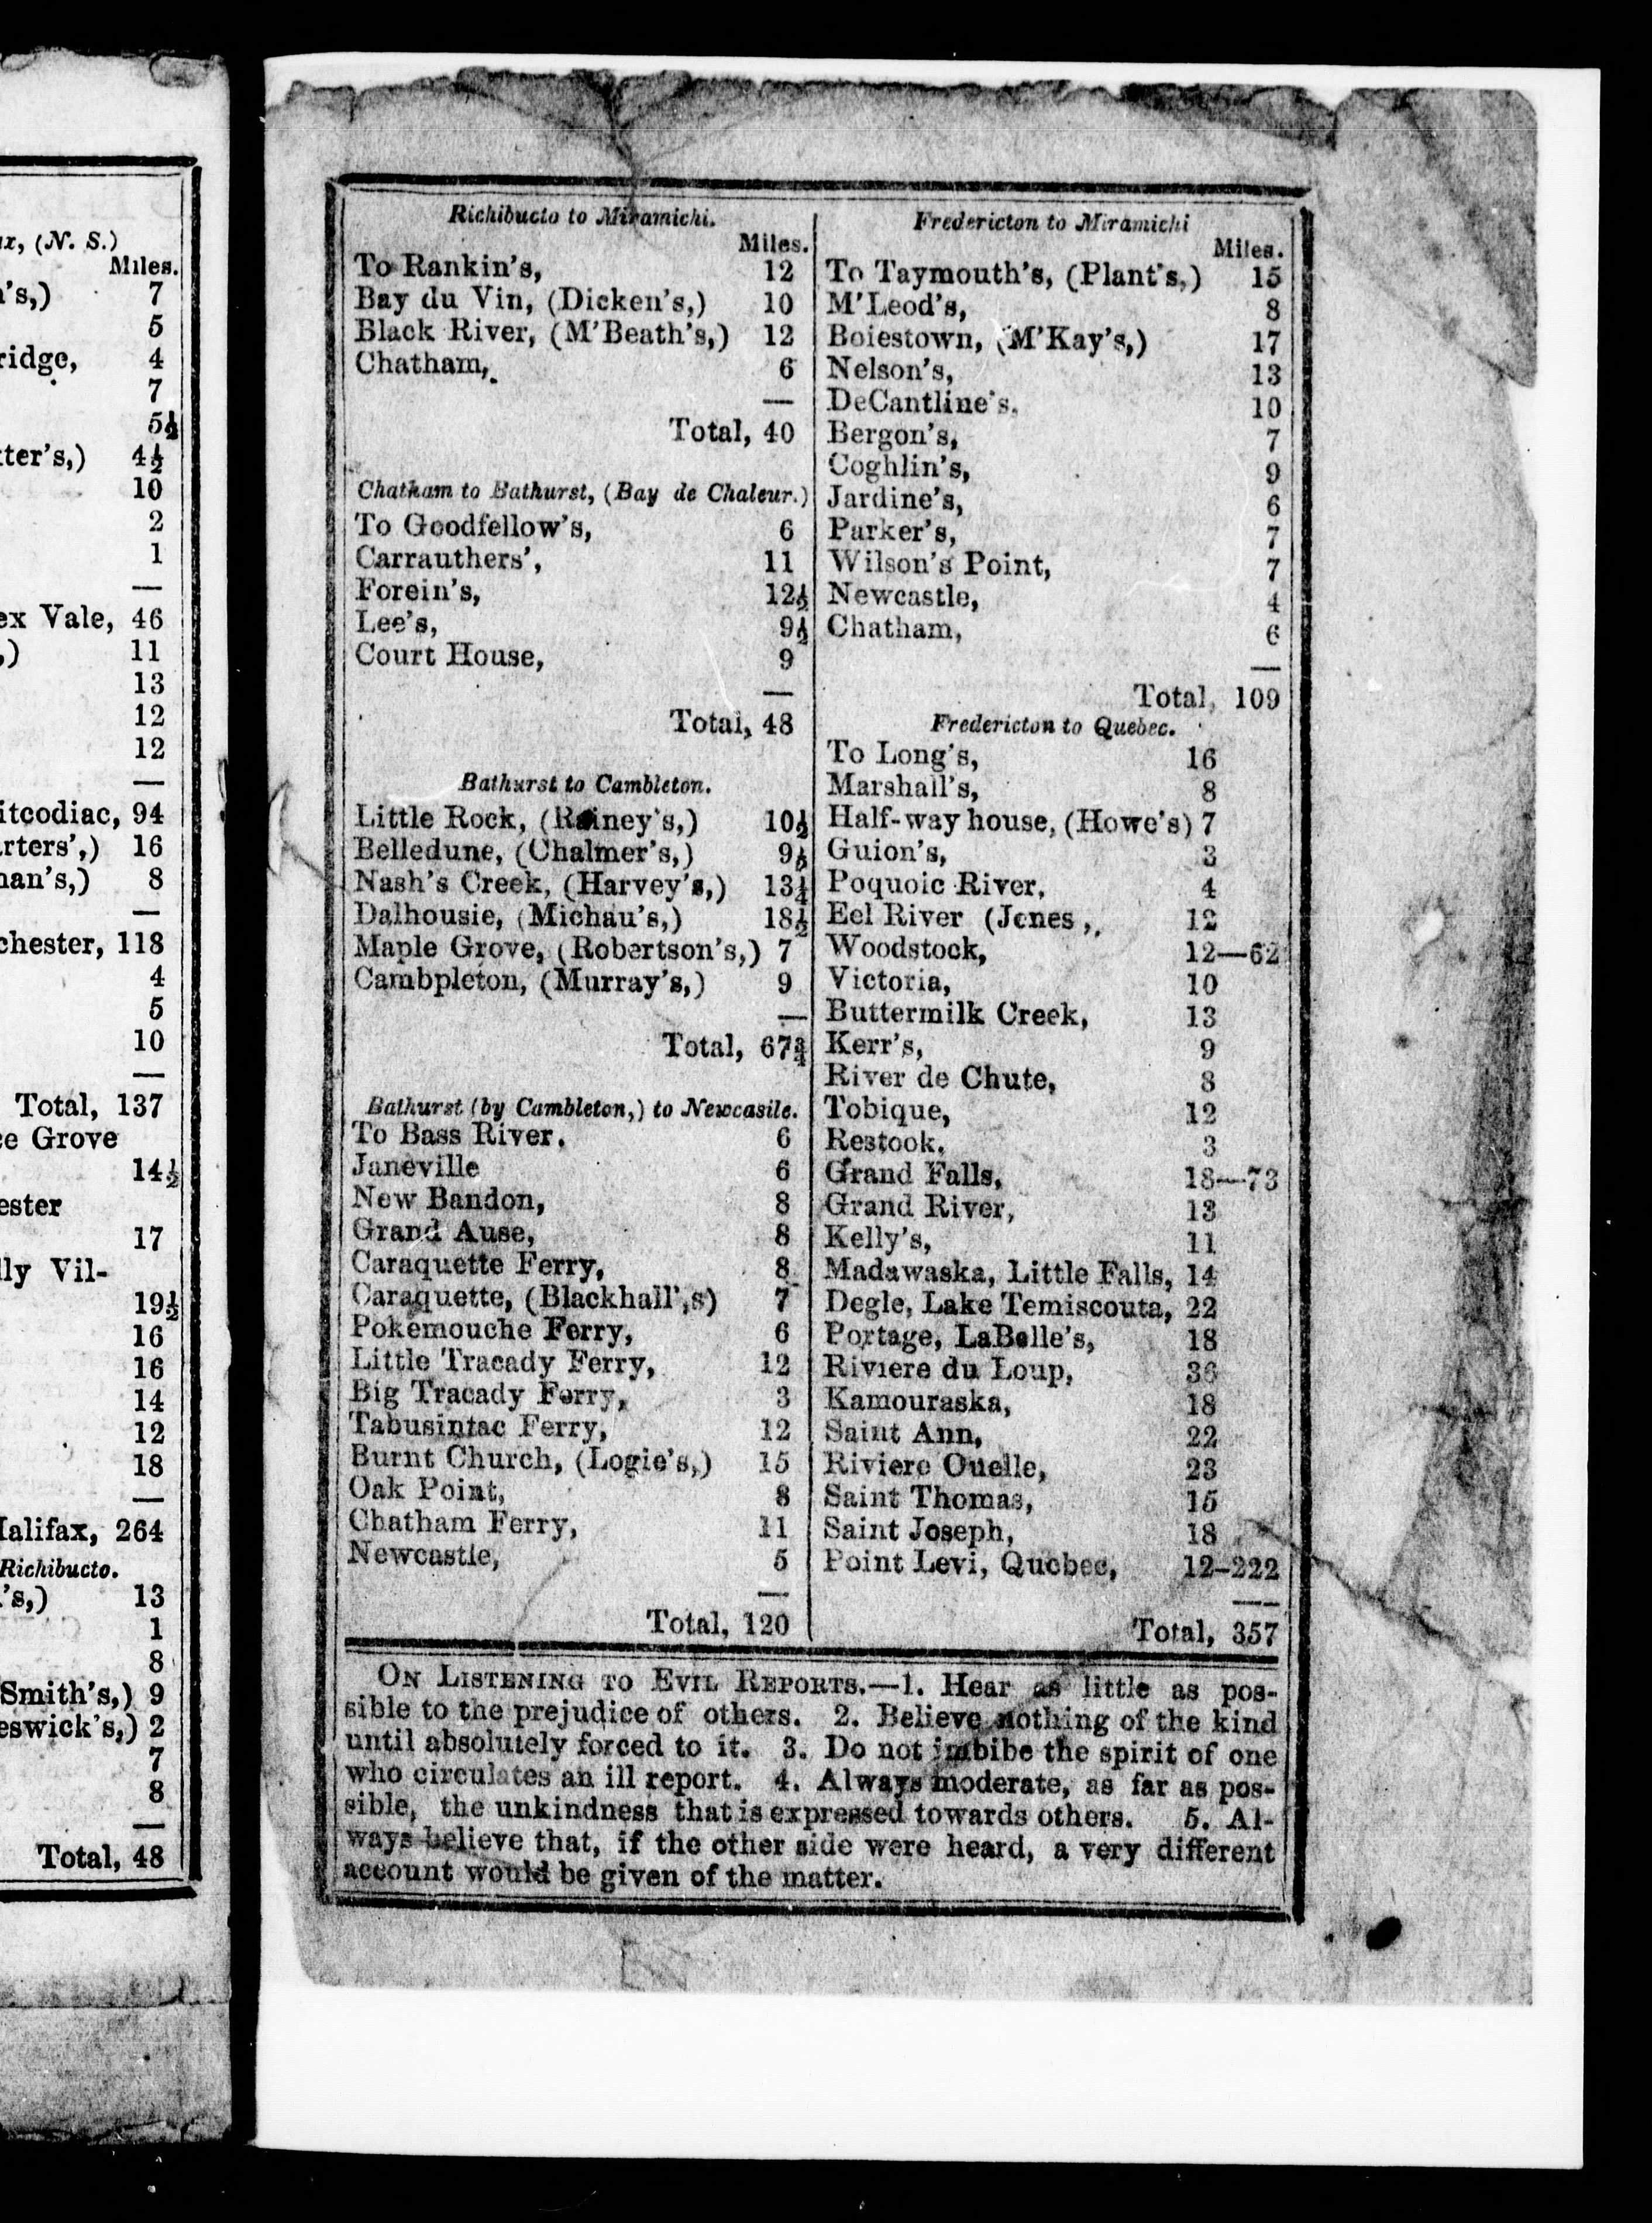 x, (N. S.)
Miles.
's,) 7
5
ridge, 4
7
5½
ter's,) 4½
10
2
1
—
ex Vale, 46
,) 11
13
12
12
—
itcodiac, 94
rters',) 16
nan's,) 8
—
chester, 118
4
5
10
—
Total, 137
ce Grove
14½
ester
17
lly Vil-
19½
16
16
14
12
18
—
Halifax, 264
Richibucto.
's,) 13
1
8
Smith's,) 9
eswick's,) 2
7
8
—
Total, 48
Richibucto to Miramichi.
Miles.
To Rankin's, 12
Bay du Vin, (Dicken's,) 10
Black River, (M'Beath's,) 12
Chatham, 6
—
Total, 40
Chatham to Bathurst, (Bay de Chaleur.)
To Goodfellow's, 6
Carrauthers', 11
Forein's, 12½
Lee's, 9½
Court House, 9
—
Total, 48
Bathurst to Cambleton.
Little Rock, (Rainey's,) 10½
Belledune, (Chalmer's,) 9½
Nash's Creek, (Harvey's,) 13¼
Dalhousie, (Michau's,) 18½
Maple Grove, (Robertson's,) 7
Cambpleton, (Murray's,) 9
—
Total, 67¾
Bathurst (by Cambleton,) to Newcastle.
To Bass River, 6
Janeville 6
New Bandon, 8
Grand Ause, 8
Caraquette Ferry, 8
Caraquette, (Blackhall',s) 7
Pokemouche Ferry, 6
Little Tracady Ferry, 12
Big Tracady Ferry, 3
Tabusintac Ferry, 12
Burnt Church, (Logie's,) 15
Oak Point, 8
Chatham Ferry, 11
Newcastle, 5
—
Total, 120
Fredericton to Miramichi
Miles.
To Taymouth's, (Plant's,) 15
M'Leod's, 8
Boiestown, (M'Kay's,) 17
Nelson's, 13
DeCantline's, 10
Bergon's, 7
Coghlin's, 9
Jardine's, 6
Parker's, 7
Wilson's Point, 7
Newcastle, 4
Chatham, 6
—
Total, 109
Fredericton to Quebec.
To Long's, 16
Marshall's, 8
Half-way house, (Howe's) 7
Guion's, 3
Poquoic River, 4
Eel River (Jones, 12
Woodstock, 12—62
Victoria, 10
Buttermilk Creek, 13
Kerr's, 9
River de Chute, 8
Tobique, 12
Restook, 3
Grand Falls, 18—73
Grand River, 13
Kelly's, 11
Madawaska, Little Falls, 14
Degle, Lake Temiscouta, 22
Portage, LaBelle's, 18
Riviere du Loup, 36
Kamouraska, 18
Saint Ann, 22
Riviere Ouelle, 23
Saint Thomas, 15
Saint Joseph, 18
Point Levi, Quebec, 12-222
—
Total, 357
ON LISTENING TO EVIL REPORTS.—1. Hear as little as pos-
sible to the prejudice of others. 2. Believe nothing of the kind
until absolutely forced to it. 3. Do not imbibe the spirit of one
who circulates an ill report. 4. Always moderate, as far as pos-
sible, the unkindness that is expressed towards others. 5. Al-
ways believe that, if the other side were heard, a very different
account would be given of the matter.